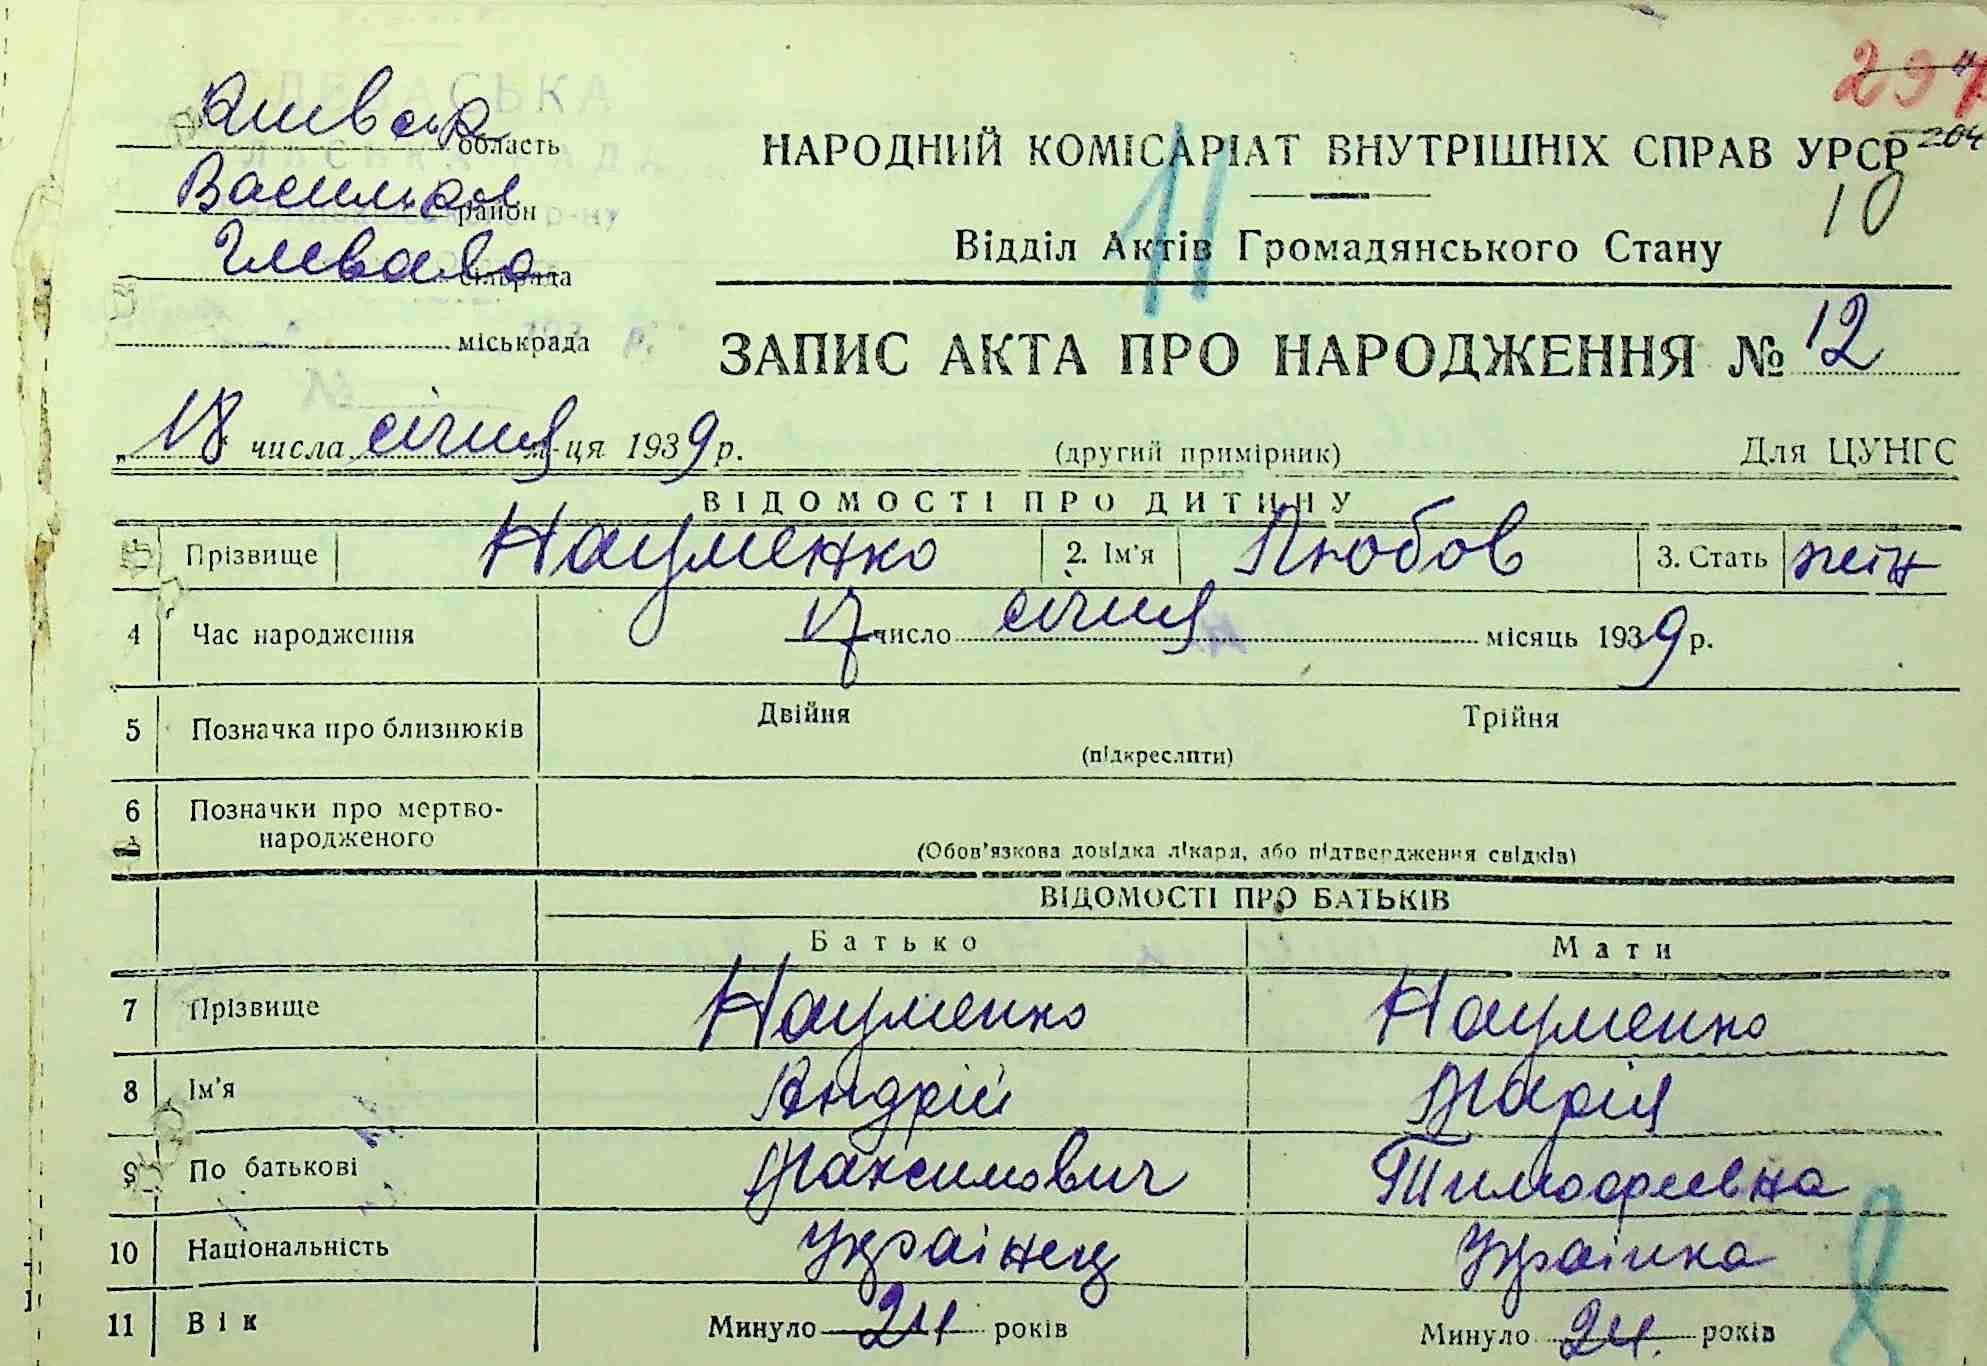 Київськ область
Васильков район
Глеваха сільрада
міськрада
204
10
НАРОДНИЙ КОМІСАРІАТ ВНУТРІШНІХ СПРАВ УРСР
11
Відділ Актів Громадянського Стану
ЗАПИС АКТА ПРО НАРОДЖЕННЯ № 12
„18 числа січня м-ця 1939 р. (другий примірник) Для ЦУНГС
ВІДОМОСТІ ПРО ДИТИНУ
Прізвище Науменко 2. Ім'я Любов 3. Стать жін
4 Час народження 17 число січня місяць 1939 р.
5 Позначка про близнюків Двійня Трійня
(підкреслити)
6 Позначки про мертво-
народженого
(Обов'язкова довідка лікаря, або підтвердження свідків)
ВІДОМОСТІ ПРО БАТЬКІВ
Батько Мати
7 Прізвище Науменко Науменко
8 Ім'я Андрій Марія
9 По батькові Максимович Тимофеевна
10 Національність Українец Украінка
11 Вік Минуло 24 років Минуло 24. років